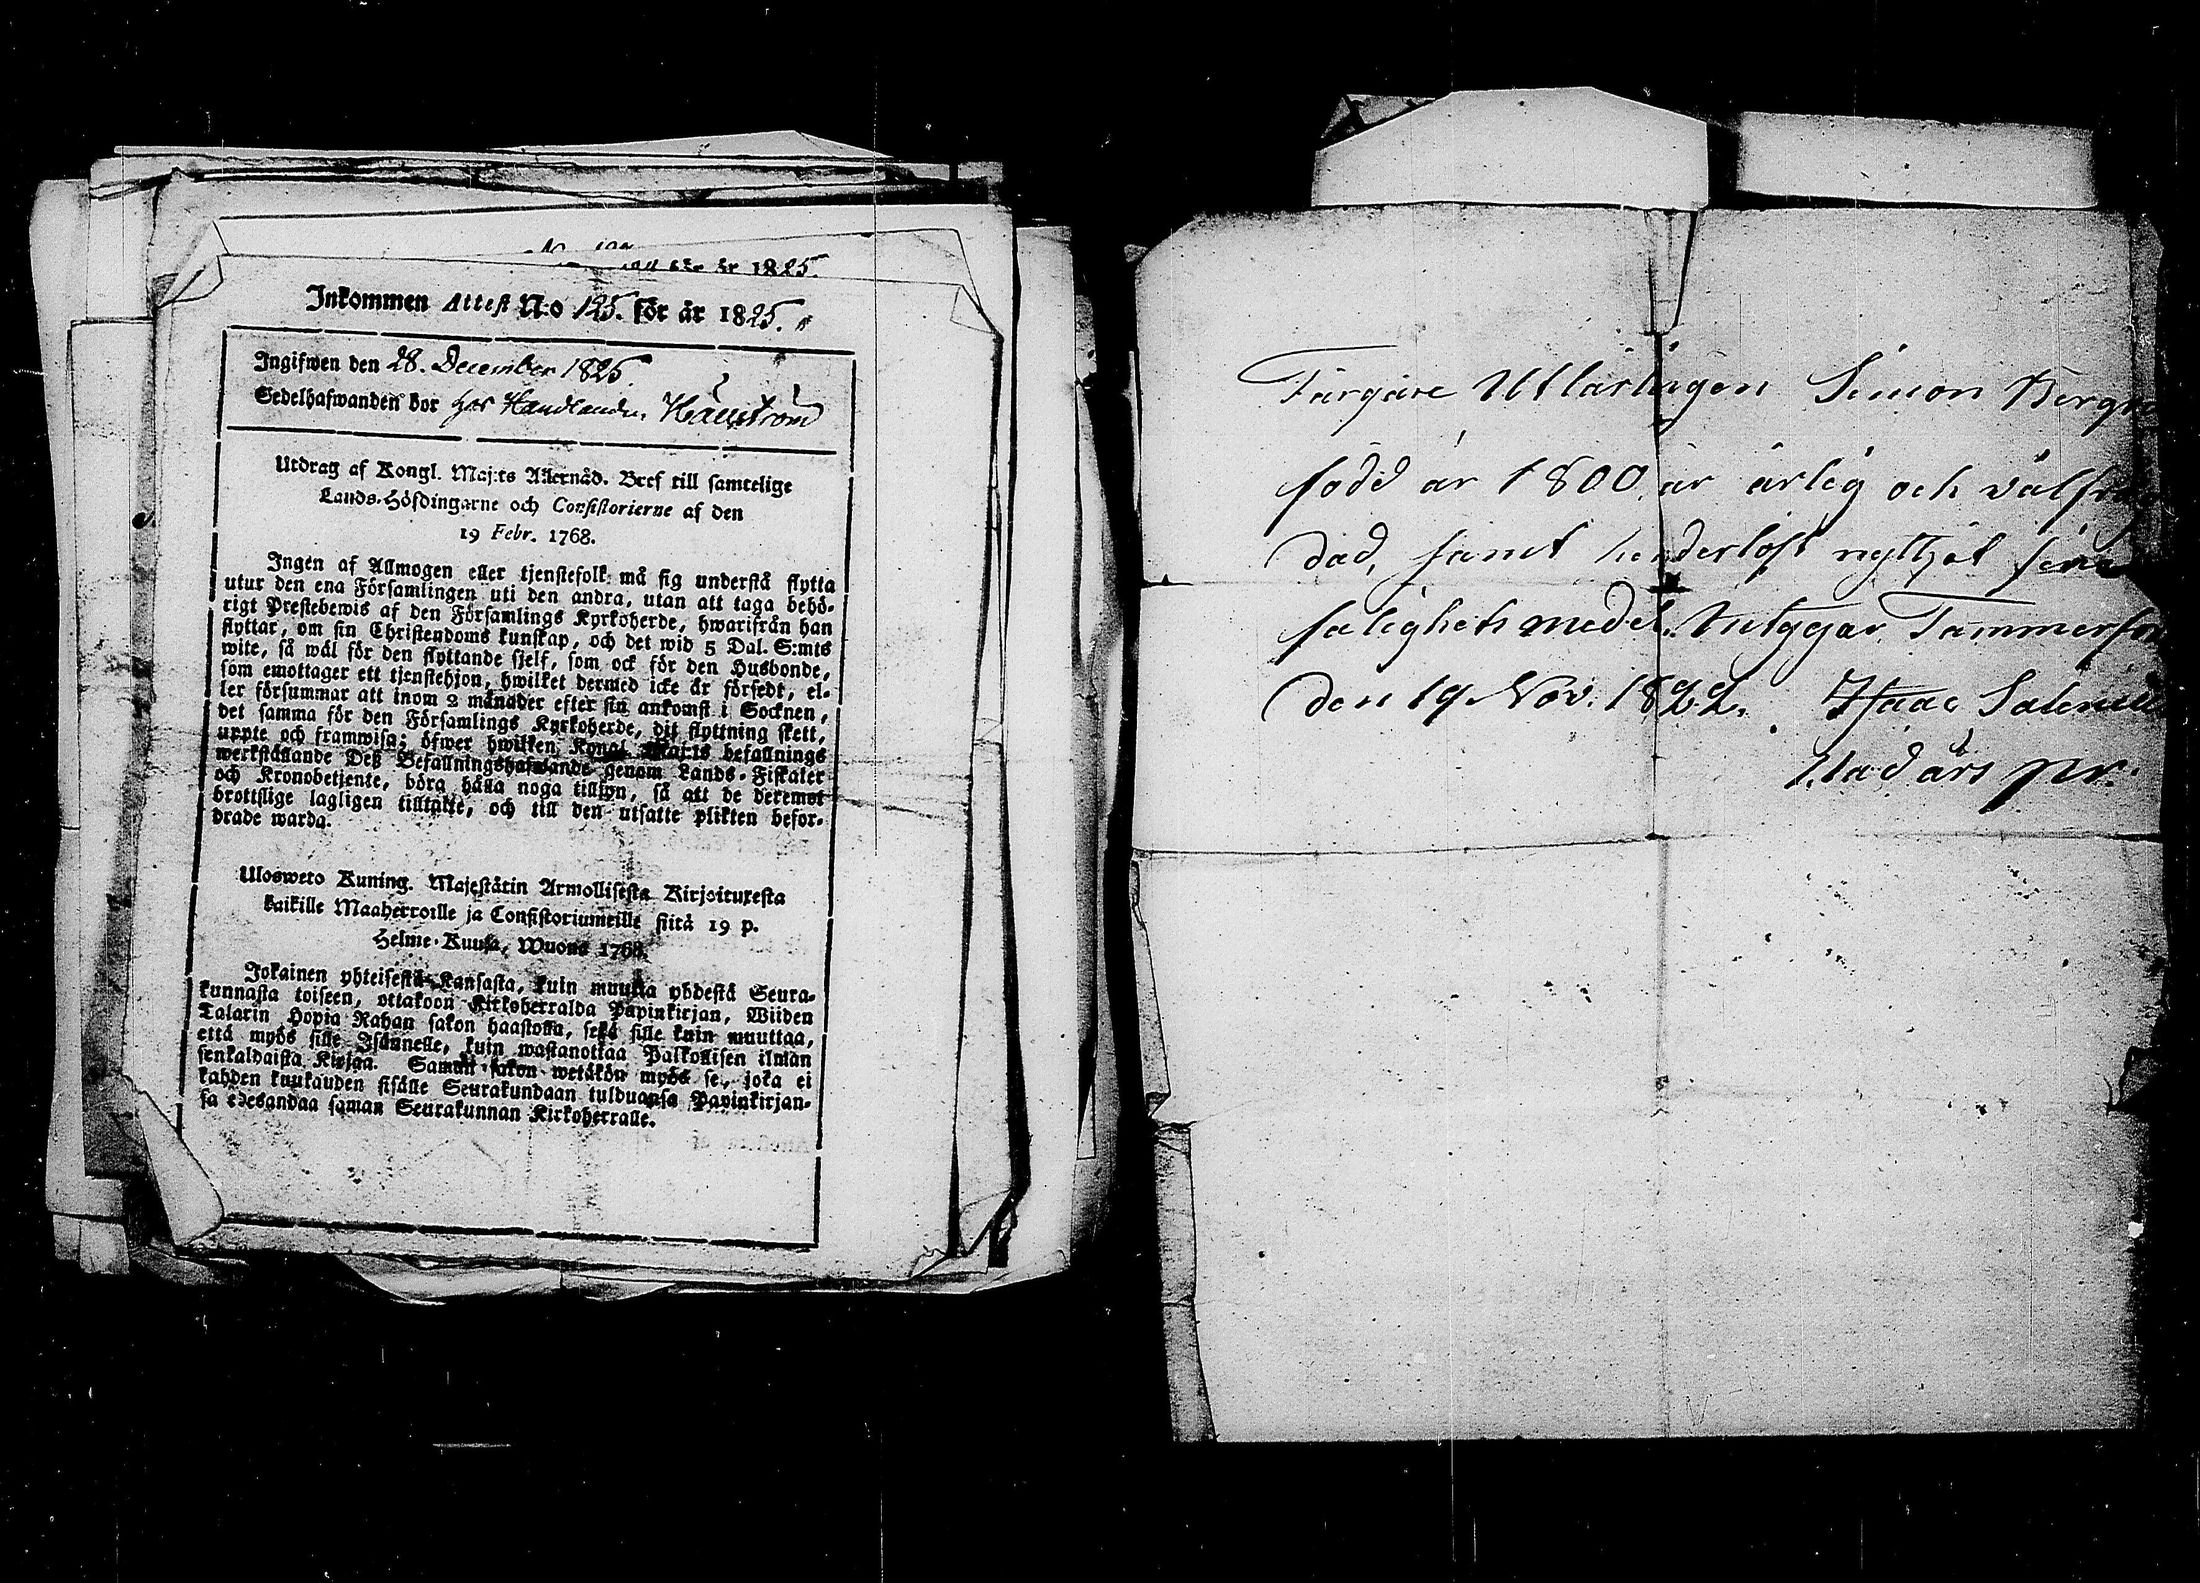 för år 1825.
Inkommen Attest N:o 125. för år 1825.
Ingifwen den 28. December 1825
Sedelhafwanden bor hos Handlanden
Utdrag af Kongl. Maj:ts Allernåd. Bref till samtelige
Lands-Höfdingarne och Consistorierne af den
19 Febr. 1768.
Ingen af Allmogen eller tjenstefolk må sig understå flytta
utur den ena Församlingen uti den andra, utan att taga behö-
rigt Prestebewis af den Församlings Kyrkoherde, hwarifrån han
flyttar, om sin Christendoms kunskap, och det wid 5 Dal. S:mts
wite, så wäl för den flyttande sjelf, som ock för den Husbonde,
som emottager ett tjenstehjon, hwilket dermed icke är försedt, el-
ler försummar att inom 2 månader efter sin ankomst i Socknen,
det samma för den Församlings Kyrkoherde, dit flyttning skett,
uppte och framwisa; öfwer hwilken Kongl. Maj:ts befallnings
werkställande Deß Befallningshafwande genom Lands-Fiskaler
och Kronobetjente, böra hålla noga tillsyn, så att de deremot
brottslige lagligen tilltalte, och till den utsatte plikten befor-
drade warda.
Ulosweto Kuning. Majestätin Armollisesta Kirjoituxesta
kaikille Maaherroille ja Consistoriumeille siitä 19 p.
Helme-Kuusa, Wuona 1768.
Jokainen yhteisestä Kansasta, kuin muutta yhdestä Seura-
kunnasta toiseen, ottakoon Kirkoherralda Papinkirjan, Wiiden
Talarin Hopia Rahan sakon haastolla, sekä sille kuin muuttaa,
että myös sille Isännelle, kuin wastanottaa Palkollisen ilman
senkaldaista Kirjaa. Saman sakon wetäkön myös se, joka ei
kahden kuukauden sisälle Seurakundaan tulduansa Papinkirjan-
sa edesandaa saman Seurakunnan Kirkoherralle.
Färgare Utlärlingen Simon
född år 1800, är ärlig och
dad, samt hinderlöst nyttjat sina
salighets medel. Tammerfors
den 19 Nov: 1822. Isaac
pr.